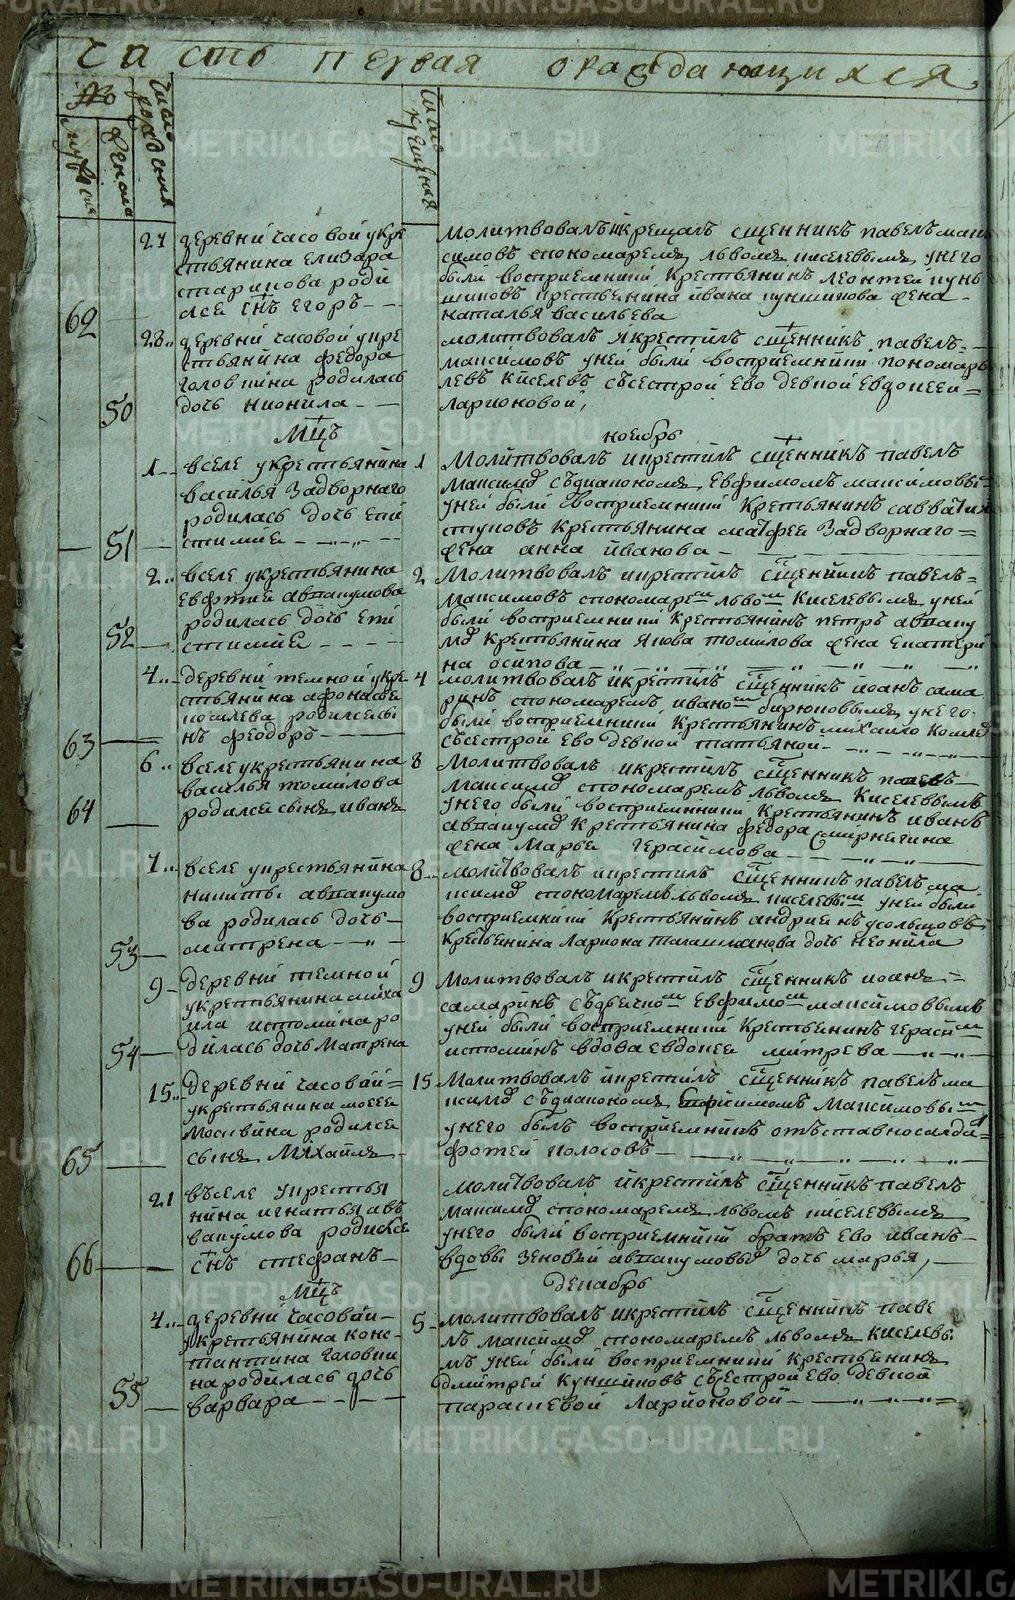 Часть первая о раждающихся
№
число рождения
число крещения
мужеска
женска
27 деревни часовой у кре
стьянина елизара
старикова роди
лся снъ егоръ
62
молитвовалъ и крещалъ сщенникъ павелъ мак
симовъ спономаремъ львомъ киселевымъ унего
были восприемники крестьянинъ леонтей кунь
шиковъ крестьянина ивана куншикова жена
наталья васильева
28 деревни часовой у кре
стьянина федора
головкина родилась
дочь нионила
50
молитвовалъ и крестилъ сщенникъ павелъ
максимовъ уней были восприемники пономарь
левъ киселевъ съ сестрой ево девкой евдокеей
Ларионовой,
Мцъ
ноябрь
1 вселе у крестьянина
василья Задворнаго
родилась дочь епи
стимия
51
1 Молитвовалъ и крестилъ сщенникъ павелъ
максимовъ съ диакономъ Евфимомъ максимовымъ
уней были восприемники крестьянинъ савватий
ступовъ крестьянина матфея Задворнаго
жена анна иванова
2 вселе у крестьянина
Евфтия аввакумова
родилась дочь епи
стимия
52
2 Молитвовалъ и крестилъ сщенникъ павелъ
Максимовъ спономаремъ львомъ Киселевымъ уней
были восприемники крестьянинъ петръ авваку
мовъ крестьянина Якова томилова жена Екатери
на осипова
4 деревни темной у кре
стьянина афонасья
родилсясы
нъ феодоръ
63
4 молитвовалъ и крестилъ сщенникъ иоанъ сама
ринъ спономаремъ иваномъ бирюковымъ унего
были восприемники Крестьянинъ михайло
съсестрой Ево девкой татьяной
6 вселе у крестьянина
василья томилова
родился сынъ иванъ
64
8 Молитвовалъ и крестилъ сщенникъ павелъ
Максимовъ спономаремъ львомъ Киселевымъ
унего были восприемники Крестьянинъ иванъ
аввакумовъ Крестьянина федора смирнягина
жена Марья Герасимова
7 вселе у крестьянина
никиты аввакумо
ва родилась дочь
матрена
53
8 молитвовалъ и крестилъ сщенникъ павелъ ма
ксимовъ спономаремъ львомъ киселевымъ уней были
восприемники Крестьянинъ андриенъ усольцовъ
Крестьянина Лариона талашманова дочь неонила
9 деревни темной
у крестьянина миха
ила истомина ро
дилась дочь Матрена
54
9 Молитвовалъ и крестилъ сщенникъ иоанъ
самаринъ Евфимомъ максимовымъ
уней были восприемники Крестьянинъ герасимъ
истоминъ вдова евдокея митрева
15 деревни часовой
у крестьянина мосея
Москвина родился
сынъ Михайла
65
15 Молитвовалъ и крестилъ сщенникъ павелъ ма
ксимовъ съ диакономъ Максимовымъ
унего былъ восприемникъ отъставной салдатъ
фотей колосовъ
21 въселе у крестья
нина игнатья авъ
вакумова родился
снъ стефанъ
66
Молитвовалъ и крестилъ сщенникъ павелъ
максимовъ спономаремъ львомъ киселевымъ
унего были восприемники братъ ево иванъ
вдовы Зеновьи аввакумовы дочь марья,
Мцъ
декабрь
4 деревни часовой
у крестьянина конс
тантина головки
на родилась дочь
варвара
55
5 молитвовалъ и крестилъ сщенникъ паве
лъ максимовъ спономаремъ львомъ Киселевы
мъ уней были восприемники крестьянинъ
дмитрей Куншиковъ съсестрой ево девкой
параскевой Ларионовой
METRIKI.GASO-URAL.RU